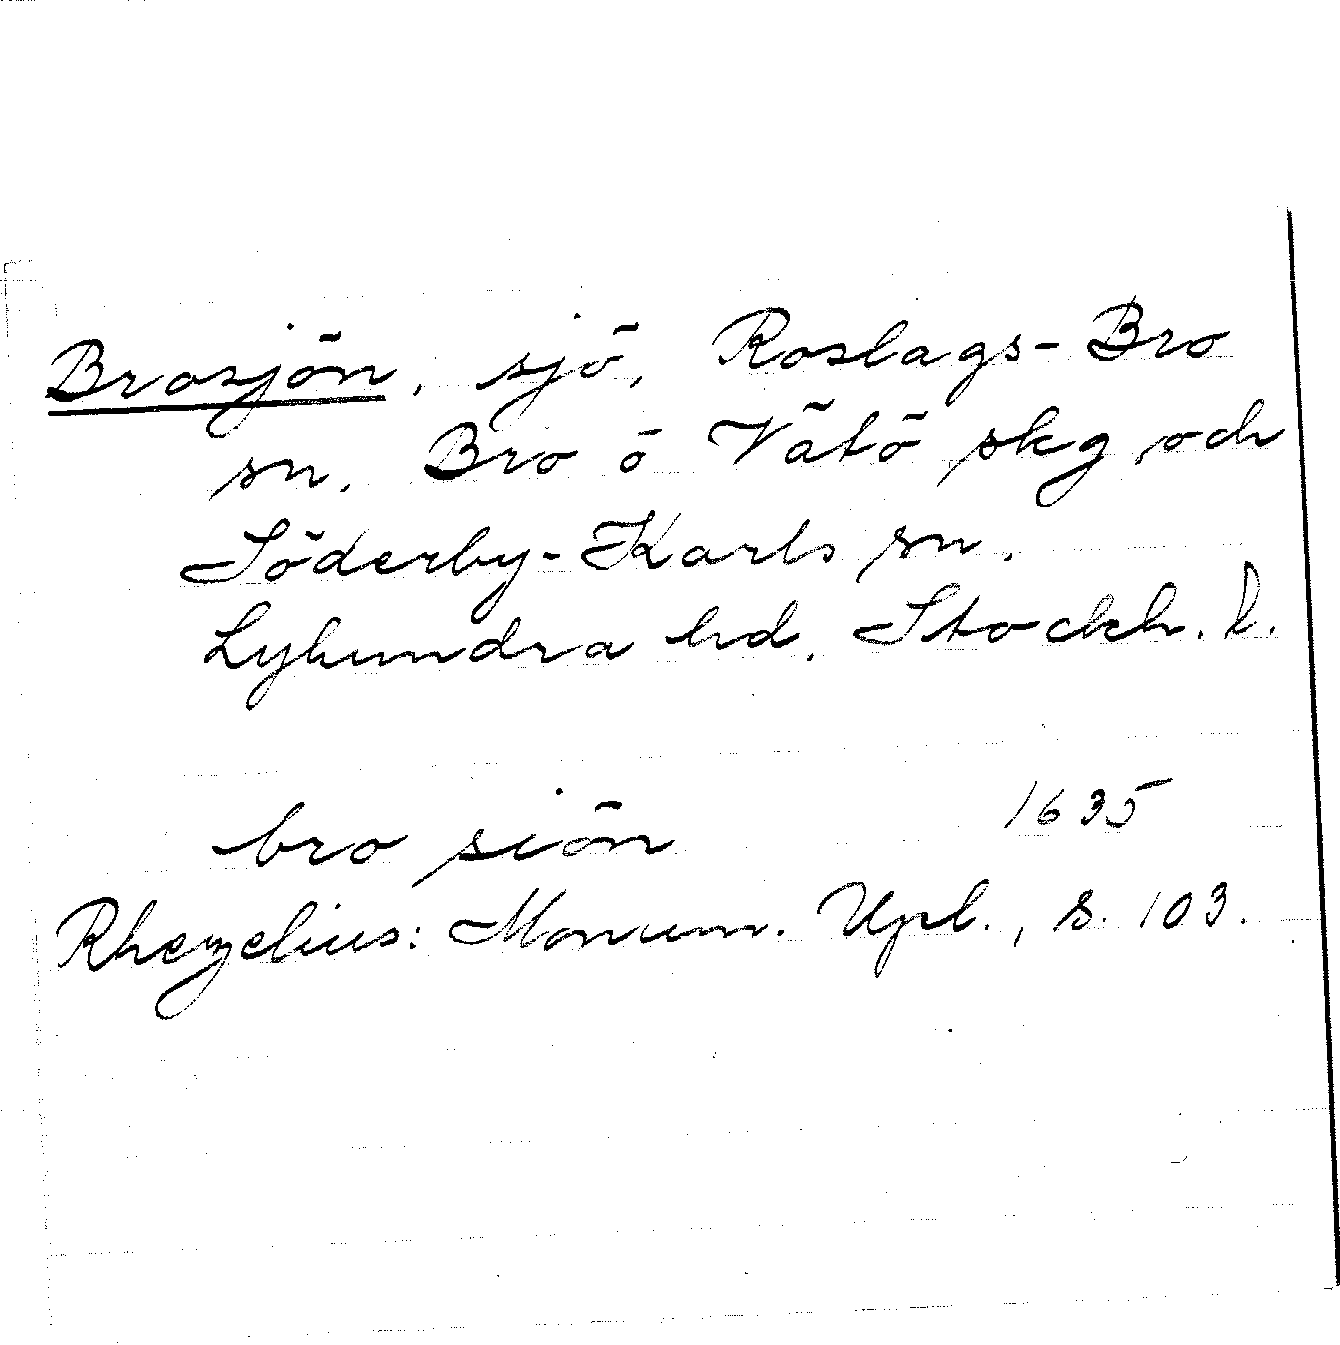 Brosjön, sjö, Roslags-Bro
sn, Bro o Vätö skg och
Söderby-Karls sn.
Lyhundra hd, Stockh. l.
bro siön 1635
Rhezelius: Monum. Upl., s. 103.